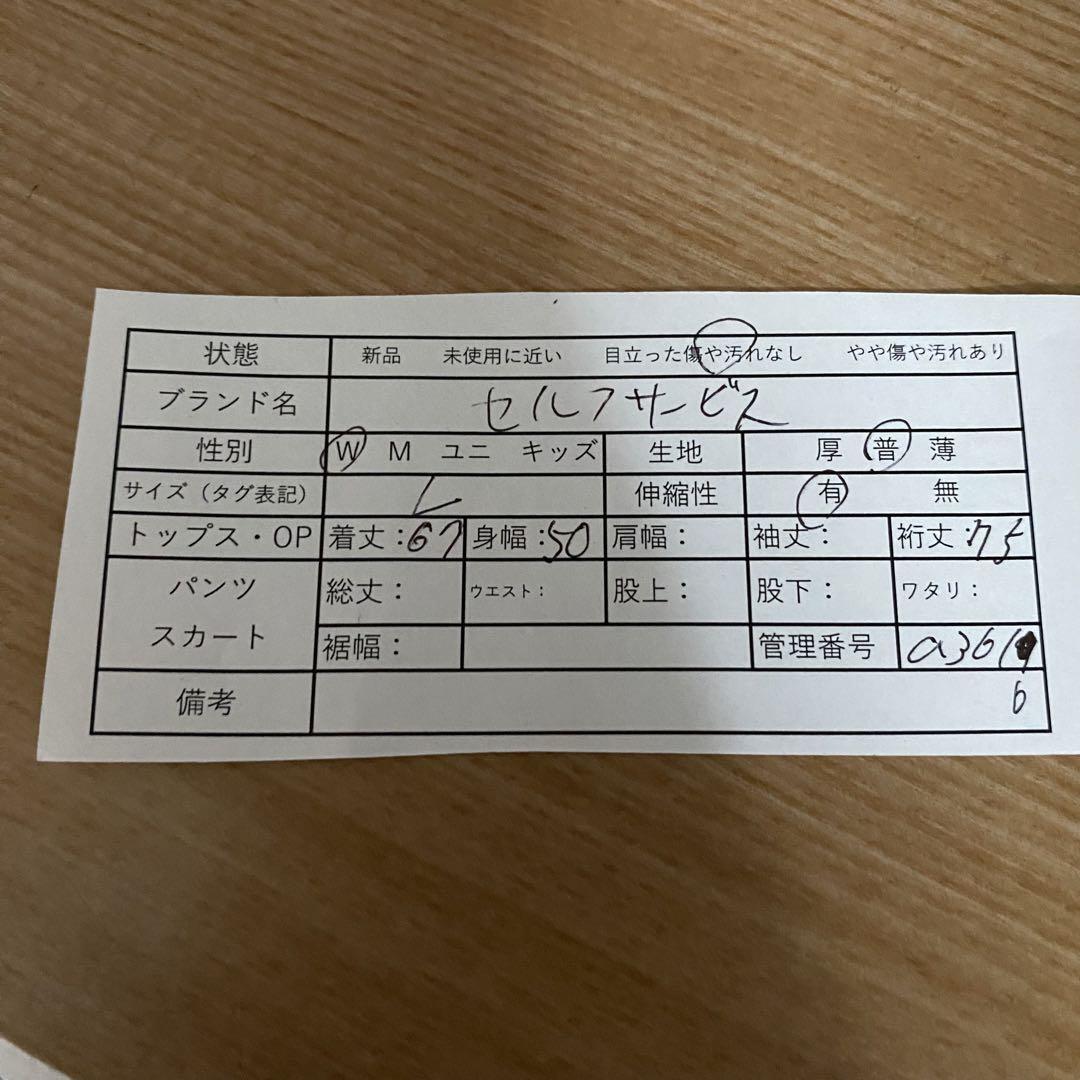 状態 新品 未使用に近い 目立った傷や汚れなし やや傷や汚れあり
ブランド名 セルフサービス
性別 W M ユニ キッズ 生地 厚 普 薄
サイズ（タグ表記） L 伸縮性 有 無
トップス・OP 着丈：67 身幅：50 肩幅： 袖丈： 裄丈：75
パンツ 総丈： ウエスト： 股上： 股下： ワタリ：
スカート 裾幅： 管理番号 a361
6
備考